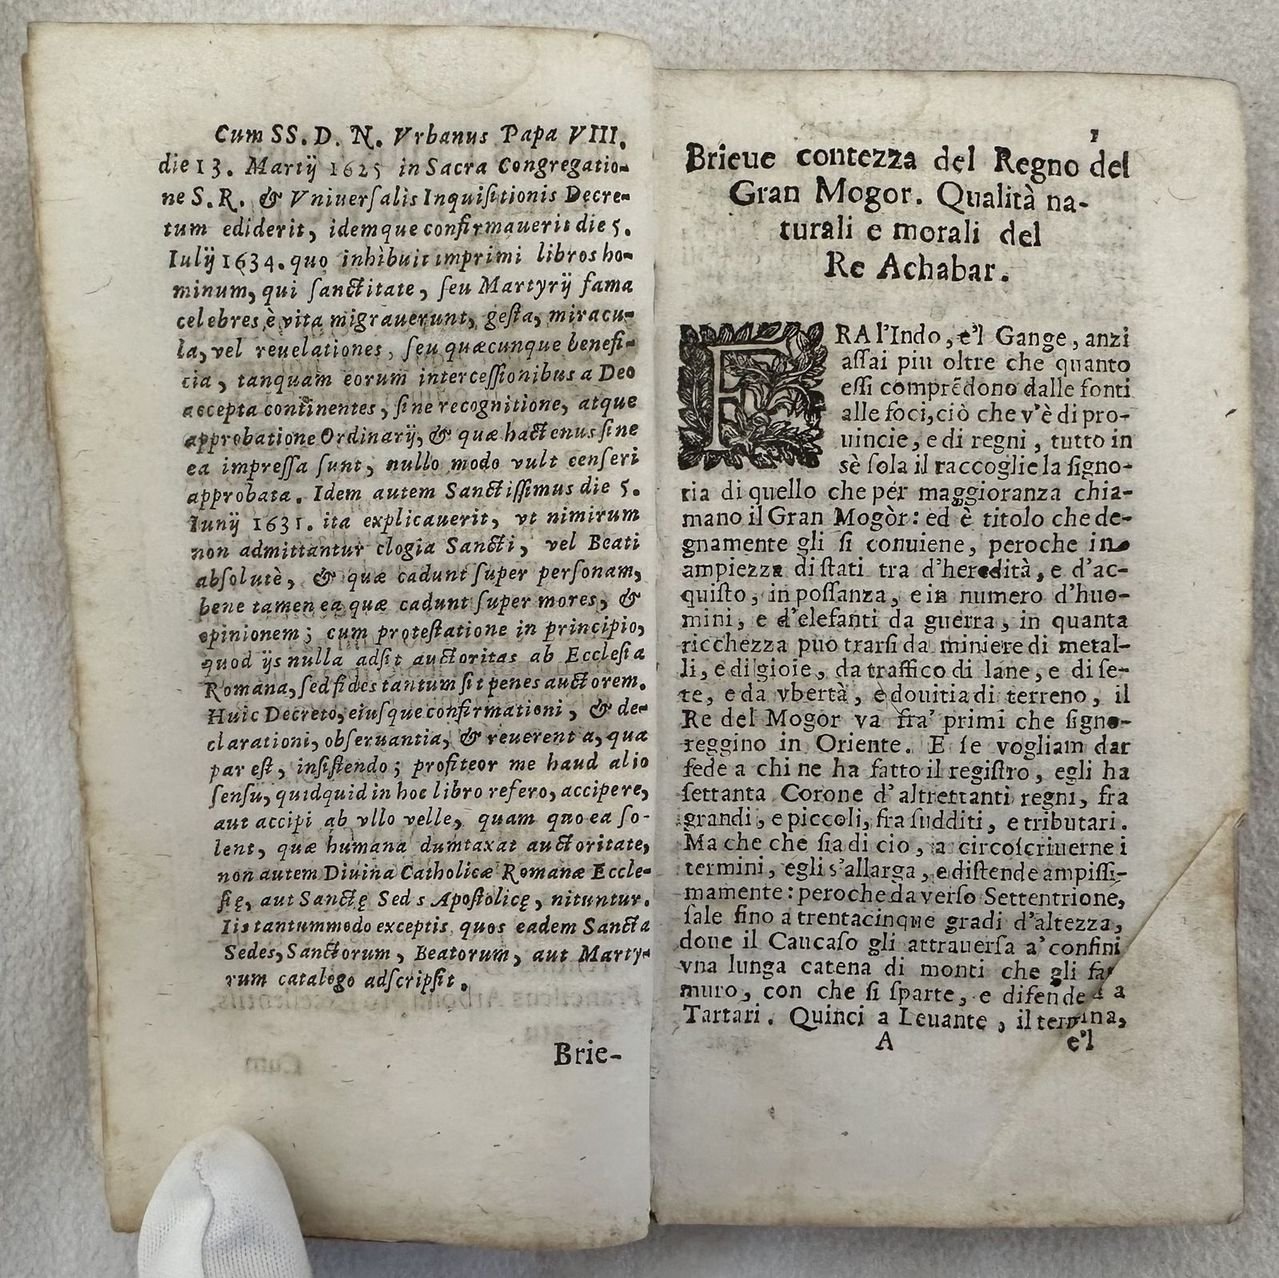 Cum SS. D. N. Vrbanus Papa VIII.
die 13. Martij 1625 in Sacra Congregatio-
ne S. R. & Vniuerſalis Inquiſitionis Decre-
tum ediderit, idemque confirmauerit die 5.
Iulij 1634. quo inhibuit imprimi libros ho-
minum, qui ſanctitate, ſeu Martyrij fama
celebres è vita migrauerunt, geſta, miracu-
la, vel reuelationes, ſeu quæcunque benefi-
cia, tanquam eorum interceſſionibus a Deo
accepta continentes, ſine recognitione, atque
approbatione Ordinarij, & quæ hactenus ſine
ea impreſſa ſunt, nullo modo vult cenſeri
approbata. Idem autem Sanctiſſimus die 5.
Iunij 1631. ita explicauerit, vt nimirum
non admittantur elogia Sancti, vel Beati
abſolutè, & quæ cadunt ſuper perſonam,
bene tamen ea quæ cadunt ſuper mores, &
opinionem; cum proteſtatione in principio,
quod ijs nulla adſit auctoritas ab Eccleſia
Romana, ſed fides tantum ſit penes auctorem.
Huic Decreto, eiuſque confirmationi, & de-
clarationi, obſeruantia, & reuerent a, qua
par eſt, inſiſtendo; profiteor me haud alio
ſenſu, quidquid in hoc libro refero, accipere,
aut accipi ab vllo velle, quam quo ea ſo-
lent, quæ humana dumtaxat auctoritate,
non autem Diuina Catholicæ Romanæ Eccle-
ſię, aut Sanctę Sed s Apoſtolicę, nituntur.
Iis tantummodo exceptis, quos eadem Sancta
Sedes, Sanctorum, Beatorum, aut Marty-
rum catalogo adſcripſit.
Brie-
1
Brieue contezza del Regno del
Gran Mogor. Qualità na-
turali e morali del
Re Achabar.
FRA l'Indo, e'l Gange, anzi
aſſai piu oltre che quanto
eſſi comprēdono dalle fonti
alle foci, ciò che v'è di pro-
uincie, e di regni, tutto in
sè ſola il raccoglie la ſigno-
ria di quello che per maggioranza chia-
mano il Gran Mogòr: ed è titolo che de-
gnamente gli ſi conuiene, peroche in
ampiezza di ſtati tra d'heredità, e d'ac-
quiſto, in poſſanza, e in numero d'huo-
mini, e d'elefanti da guerra, in quanta
ricchezza può trarſi da miniere di metal-
li, e di gioie, da traffico di lane, e di ſe-
te, e da vbertà, e douitia di terreno, il
Re del Mogor va fra' primi che ſigno-
reggino in Oriente. E ſe vogliam dar
fede a chi ne ha fatto il regiſtro, egli ha
ſettanta Corone d'altrettanti regni, fra
grandi, e piccoli, fra ſudditi, e tributari.
Ma che che ſia di cio, a circoſcriuerne i
termini, egli s'allarga, e diſtende ampiſſi-
mamente: peroche da verſo Settentrione,
ſale fino a trentacinque gradi d'altezza,
doue il Caucaſo gli attrauerſa a' confini
vna lunga catena di monti che gli fa
muro, con che ſi ſparte, e difende da
Tartari. Quinci a Leuante, il termina,
A e'l